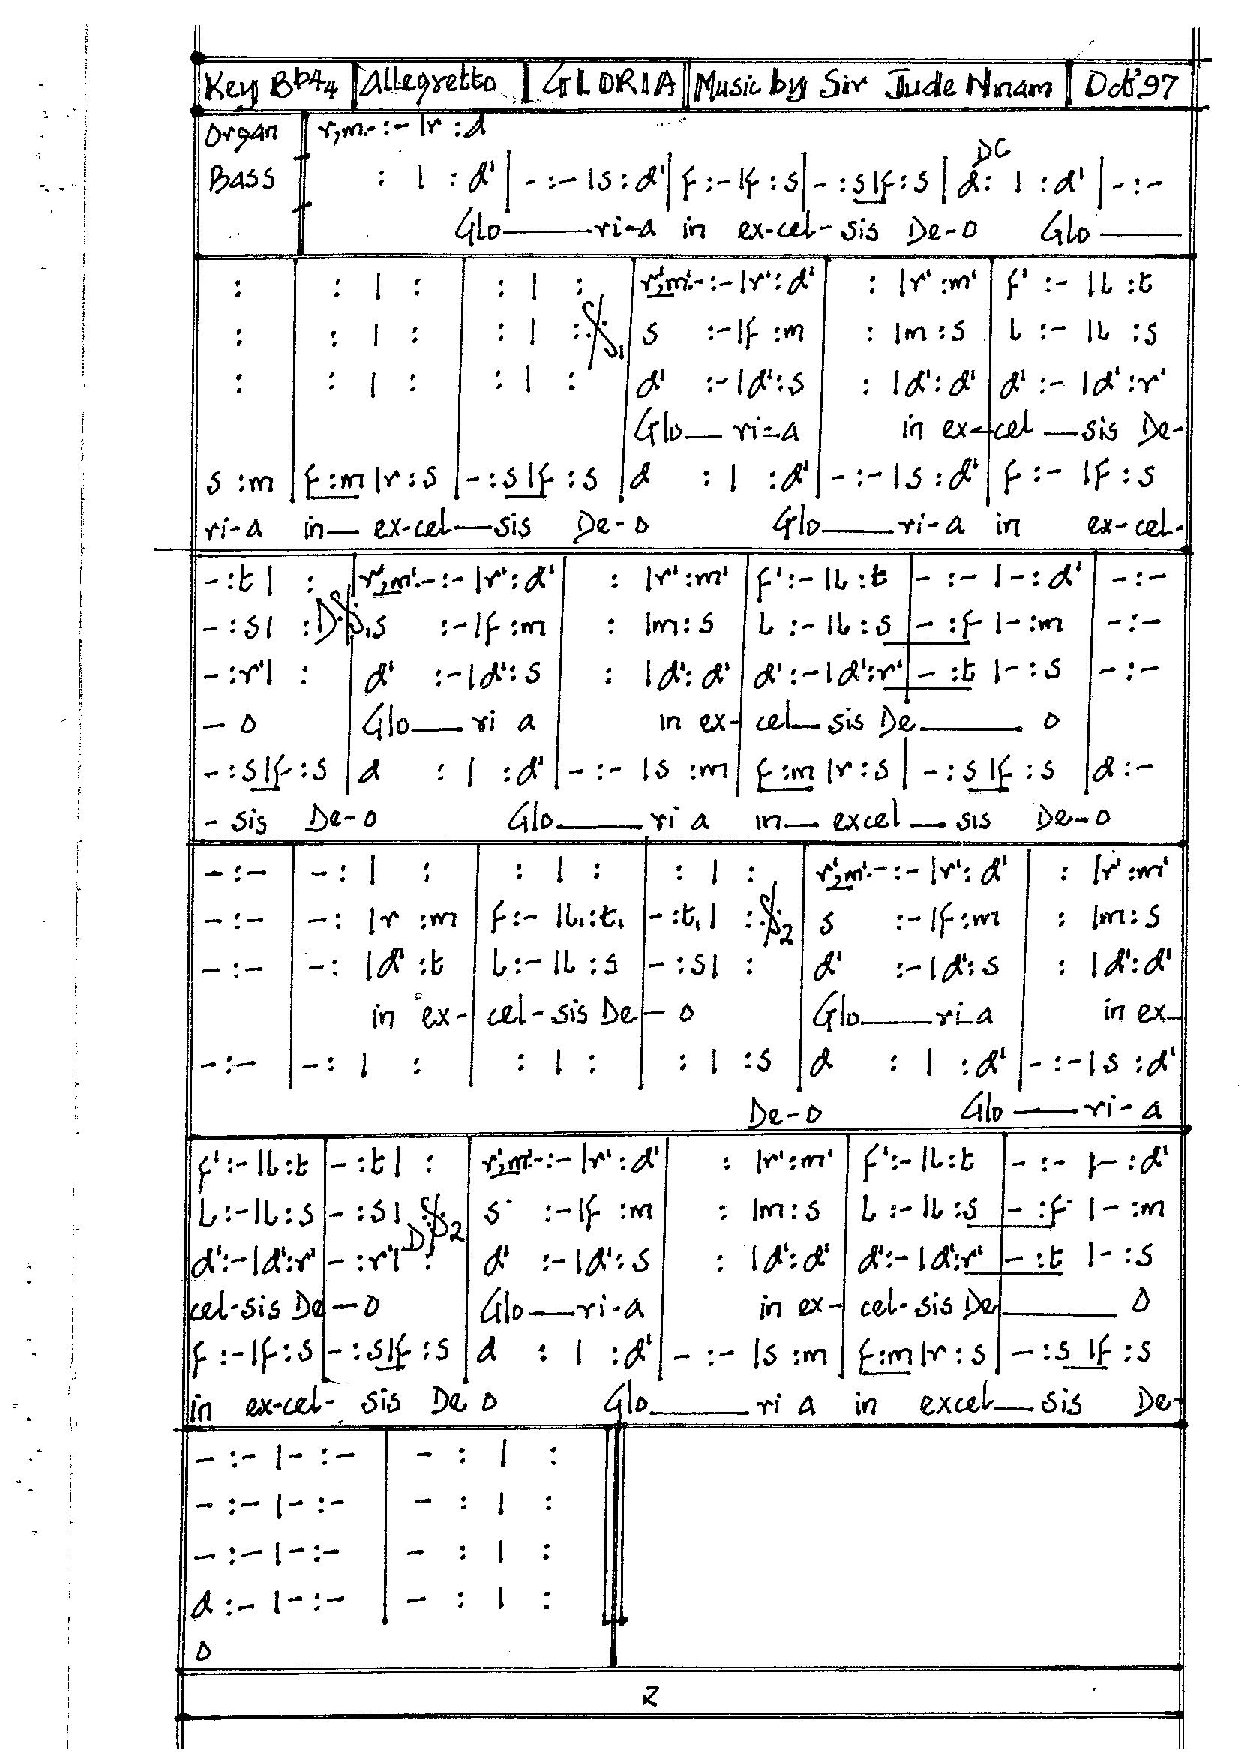 Key Bb 4/4 | Allegretto | GLORIA | Music by Sir Jude Nnam | Oct '97
Organ | r,m.-:- |r :d
DC
BASS | : | : d' | -:- |s : d' | f :- |f : s | - :s|f : s | d : | : d' | -:-
Glo___ri-a in ex-cel-sis De-o Glo___
: | : | : | : | : | r',m'.-:- |r' : d' | : |r' :m' | f' :- |l :t
: | : | : | : | : S1 | s :- |f :m | : |m :s | l :- |l :s
: | : | : | : | : | d' :- |d' :s | : |d' :d' | d' :- |d' :r'
Glo__ri-a in ex-cel__sis De-
s :m | f :m |r :s | - :s|f :s | d : | :d' | -:- |s :d' | f :- |f :s
ri-a in__ ex-cel__sis De-o Glo___ri-a in ex-cel-
- :t | : | r',m'.-:- |r' :d' | : |r' :m' | f' :- |l :t | -:- |- :d' | -:-
- :s | : D.S1 | s :- |f :m | : |m :s | l :- |l :s | - :f |- :m | -:-
- :r' | : | d' :- |d' :s | : |d' :d' | d' :- |d' :r' | - :t |- :s | -:-
- o Glo__ri a in ex- cel__sis De____ o
- :s|f :s | d : | :d' | -:- |s :m | f :m |r :s | - :s |f :s | d :-
- sis De-o Glo___ri a in__ excel__sis De-o
-:- | - : | : | : | : | : | : | r',m'.-:- |r' :d' | : |r' :m'
-:- | - : |r :m | f :- |l₁ :t₁ | - :t₁ | : S2 | s :- |f :m | : |m :s
-:- | - : |d' :t | l :- |l :s | - :s | : | d' :- |d' :s | : |d' :d'
in ex- cel-sis De- o Glo___ri-a in ex-
-:- | - : | : | : | : | : | :s | d : | :d' | -:- |s :d'
De-o Glo___ri-a
f' :- |l :t | - :t | : | r',m'.-:- |r' :d' | : |r' :m' | f' :- |l :t | -:- |- :d'
l :- |l :s | - :s | : D.S2 | s :- |f :m | : |m :s | l :- |l :s | - :f |- :m
d' :- |d' :r' | - :r' | : | d' :- |d' :s | : |d' :d' | d' :- |d' :r' | - :t |- :s
cel-sis De-o Glo__ri-a in ex- cel-sis De____ o
f :- |f :s | - :s|f :s | d : | :d' | -:- |s :m | f :m |r :s | - :s |f :s
in ex-cel- sis De o Glo___ri a in excel__sis De-
-:- |-:- | - : | :
-:- |-:- | - : | :
-:- |-:- | - : | :
d :- |-:- | - : | :
o
2